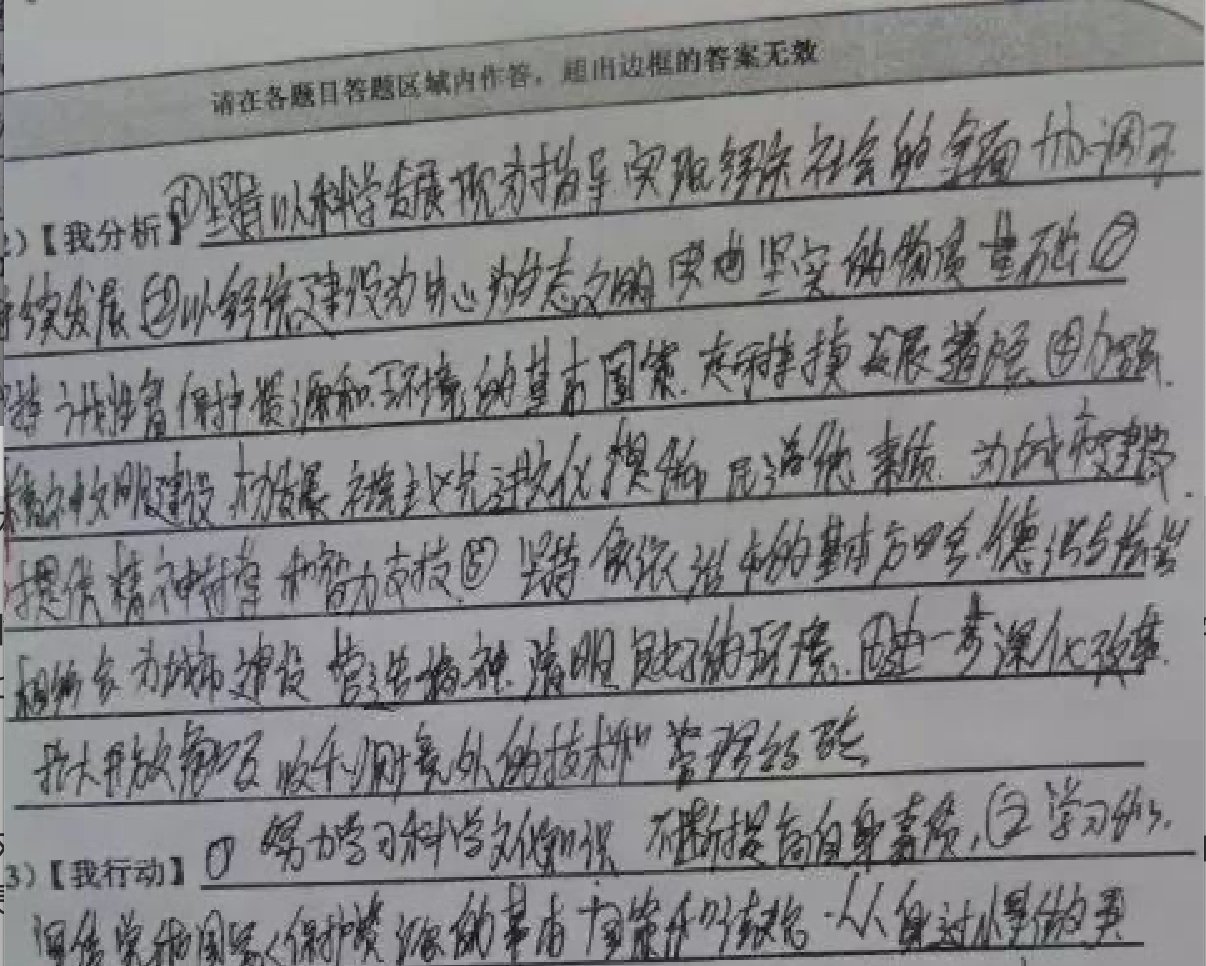 请在各题目答题区域内作答，超出边框的答案无效
2）【我分析】①坚持以科学发展观为指导 实现经济社会的全面协调可
持续发展 ②以经济建设为中心 为生态文明 奠定坚实的物质基础 ③
持计划生育保护资源和环境的基本国策. 走可持续发展道路 ④加强.
精神文明建设 大力发展社会主义先进文化 提高 民道德素质. 为城市建设.
提供精神支撑和智力支持 ⑤ 坚持 依法治市的基本方略. 德治与法治
相结合 为城市建设 营造 清明良好的环境. ⑥进一步深化改革.
扩大开放 吸收利用境外的技术和管理经验
3）【我行动】① 努力学习科学文化知识 不断提高自身素质, ② 学习
宣传 国家保护资源的基本国策和 从自身小事做